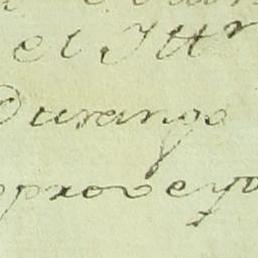 el Ittr
Durango
oproveyo